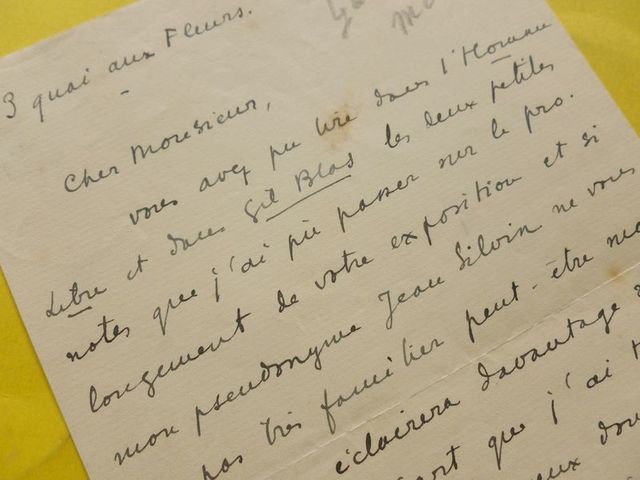 3 quai aux Fleurs.
Cher Monsieur,
vous avez pu lire dans l'Homme
Libre et dans Gil Blas les deux petites
notes que j'ai pu passer sur le pro.
longement de votre exposition et si
mon pseudonyme Jean Silvin ne vous
pas très familier peut-être
éclairera davantage
que j'ai